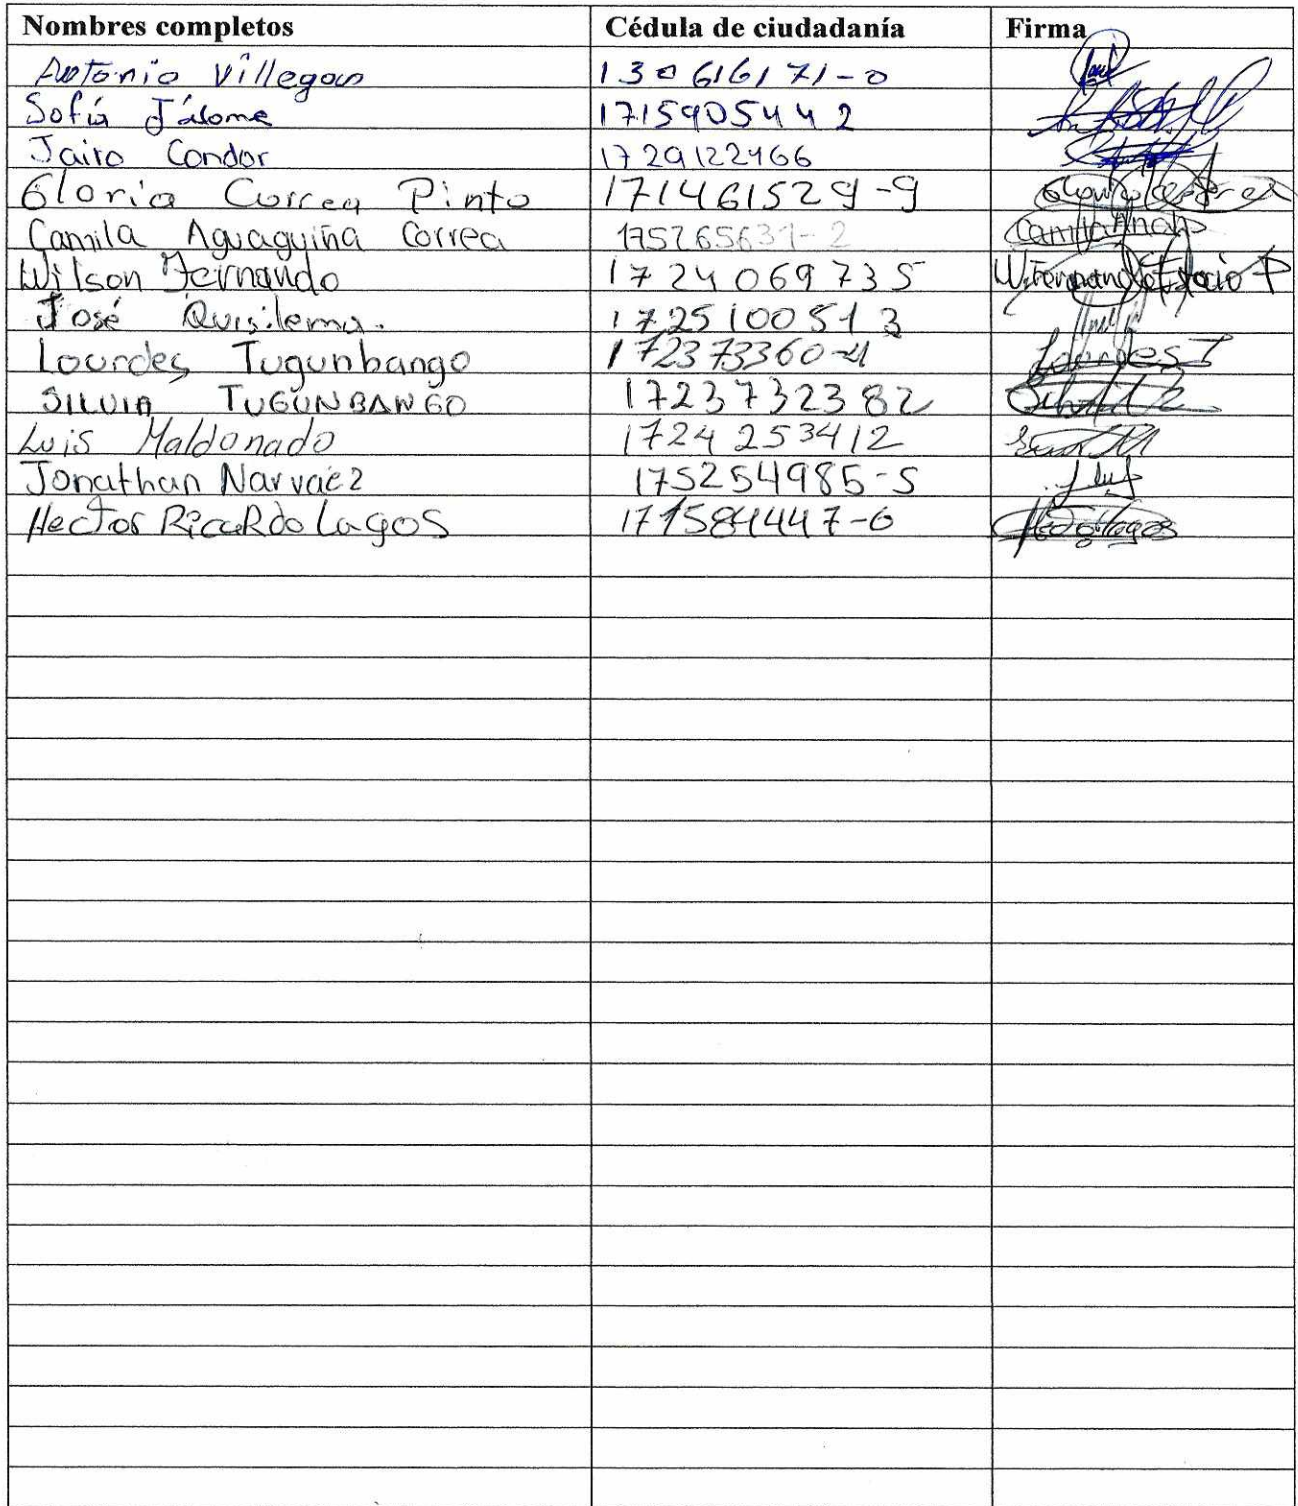 Nombres completos Cédula de ciudadanía Firma
Antonio Villegas 130616171-0
Sofía Jálome 1715905442
Jairo Condor 1729122466
Gloria Correa Pinto 171461529-9
Camila Aguaguiña Correa 175265631-2
Wilson Fernando 1724069735 W.Fernando
José Quisilema. 1725100513
Lourdes Tugunbango 172373360-4 Lourdes T
SILVIA TUGUNBANGO 1723732382
Luis Maldonado 1724253412
Jonathan Narvaéz 175254985-5
Hector RicaRdo Lagos 171584447-6